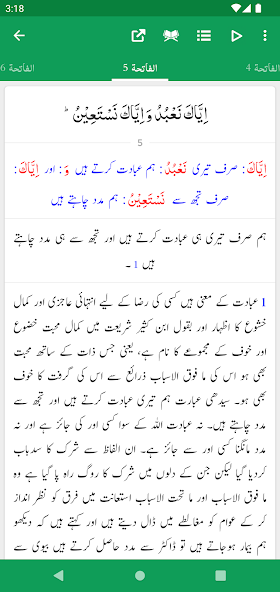 3:18
الفاتحة 6 الفاتحة 5 الفاتحة 4
اِيَّاكَ نَعْبُدُ وَ اِيَّاكَ نَسْتَعِيْنُ ؕ
5
اِيَّاكَ: صرف تیری نَعْبُدُ: ہم عبادت کرتے ہیں وَ: اور اِيَّاكَ:
صرف تجھ سے نَسْتَعِيْنُ: ہم مدد چاہتے ہیں
ہم صرف تیری ہی عبادت کرتے ہیں اور تجھ سے ہی مدد چاہتے
ہیں 1 ۔
1 عبادت کے معنی ہیں کسی کی رضا کے لیے انتہائی عاجزی اور کمال
خشوع کا اظہار اور بقول ابن کثیر شریعت میں کمال محبت خضوع
اور خوف کے مجموعے کا نام ہے، یعنی جس ذات کے ساتھ محبت
بھی ہو اس کی ما فوق الاسباب ذرائع سے اس کی گرفت کا خوف
بھی ہو۔ سیدھی عبارت ہم تیری عبادت کرتے ہیں اور تجھ سے
مدد چاہتے ہیں۔ نہ عبادت اللہ کے سوا کسی اور کی جائز ہے اور نہ
مدد مانگنا کسی اور سے جائز ہے۔ ان الفاظ سے شرک کا سدباب
کردیا گیا لیکن جن کے دلوں میں شرک کا روگ راہ پا گیا ہے وہ
ما فوق الاسباب اور ما تحت الاسباب استعانت میں فرق کو نظر انداز
کر کے عوام کو مغالطے میں ڈال دیتے ہیں اور کہتے ہیں کہ دیکھو
ہم بیمار ہوجاتے ہیں تو ڈاکٹر سے مدد حاصل کرتے ہیں بیوی سے